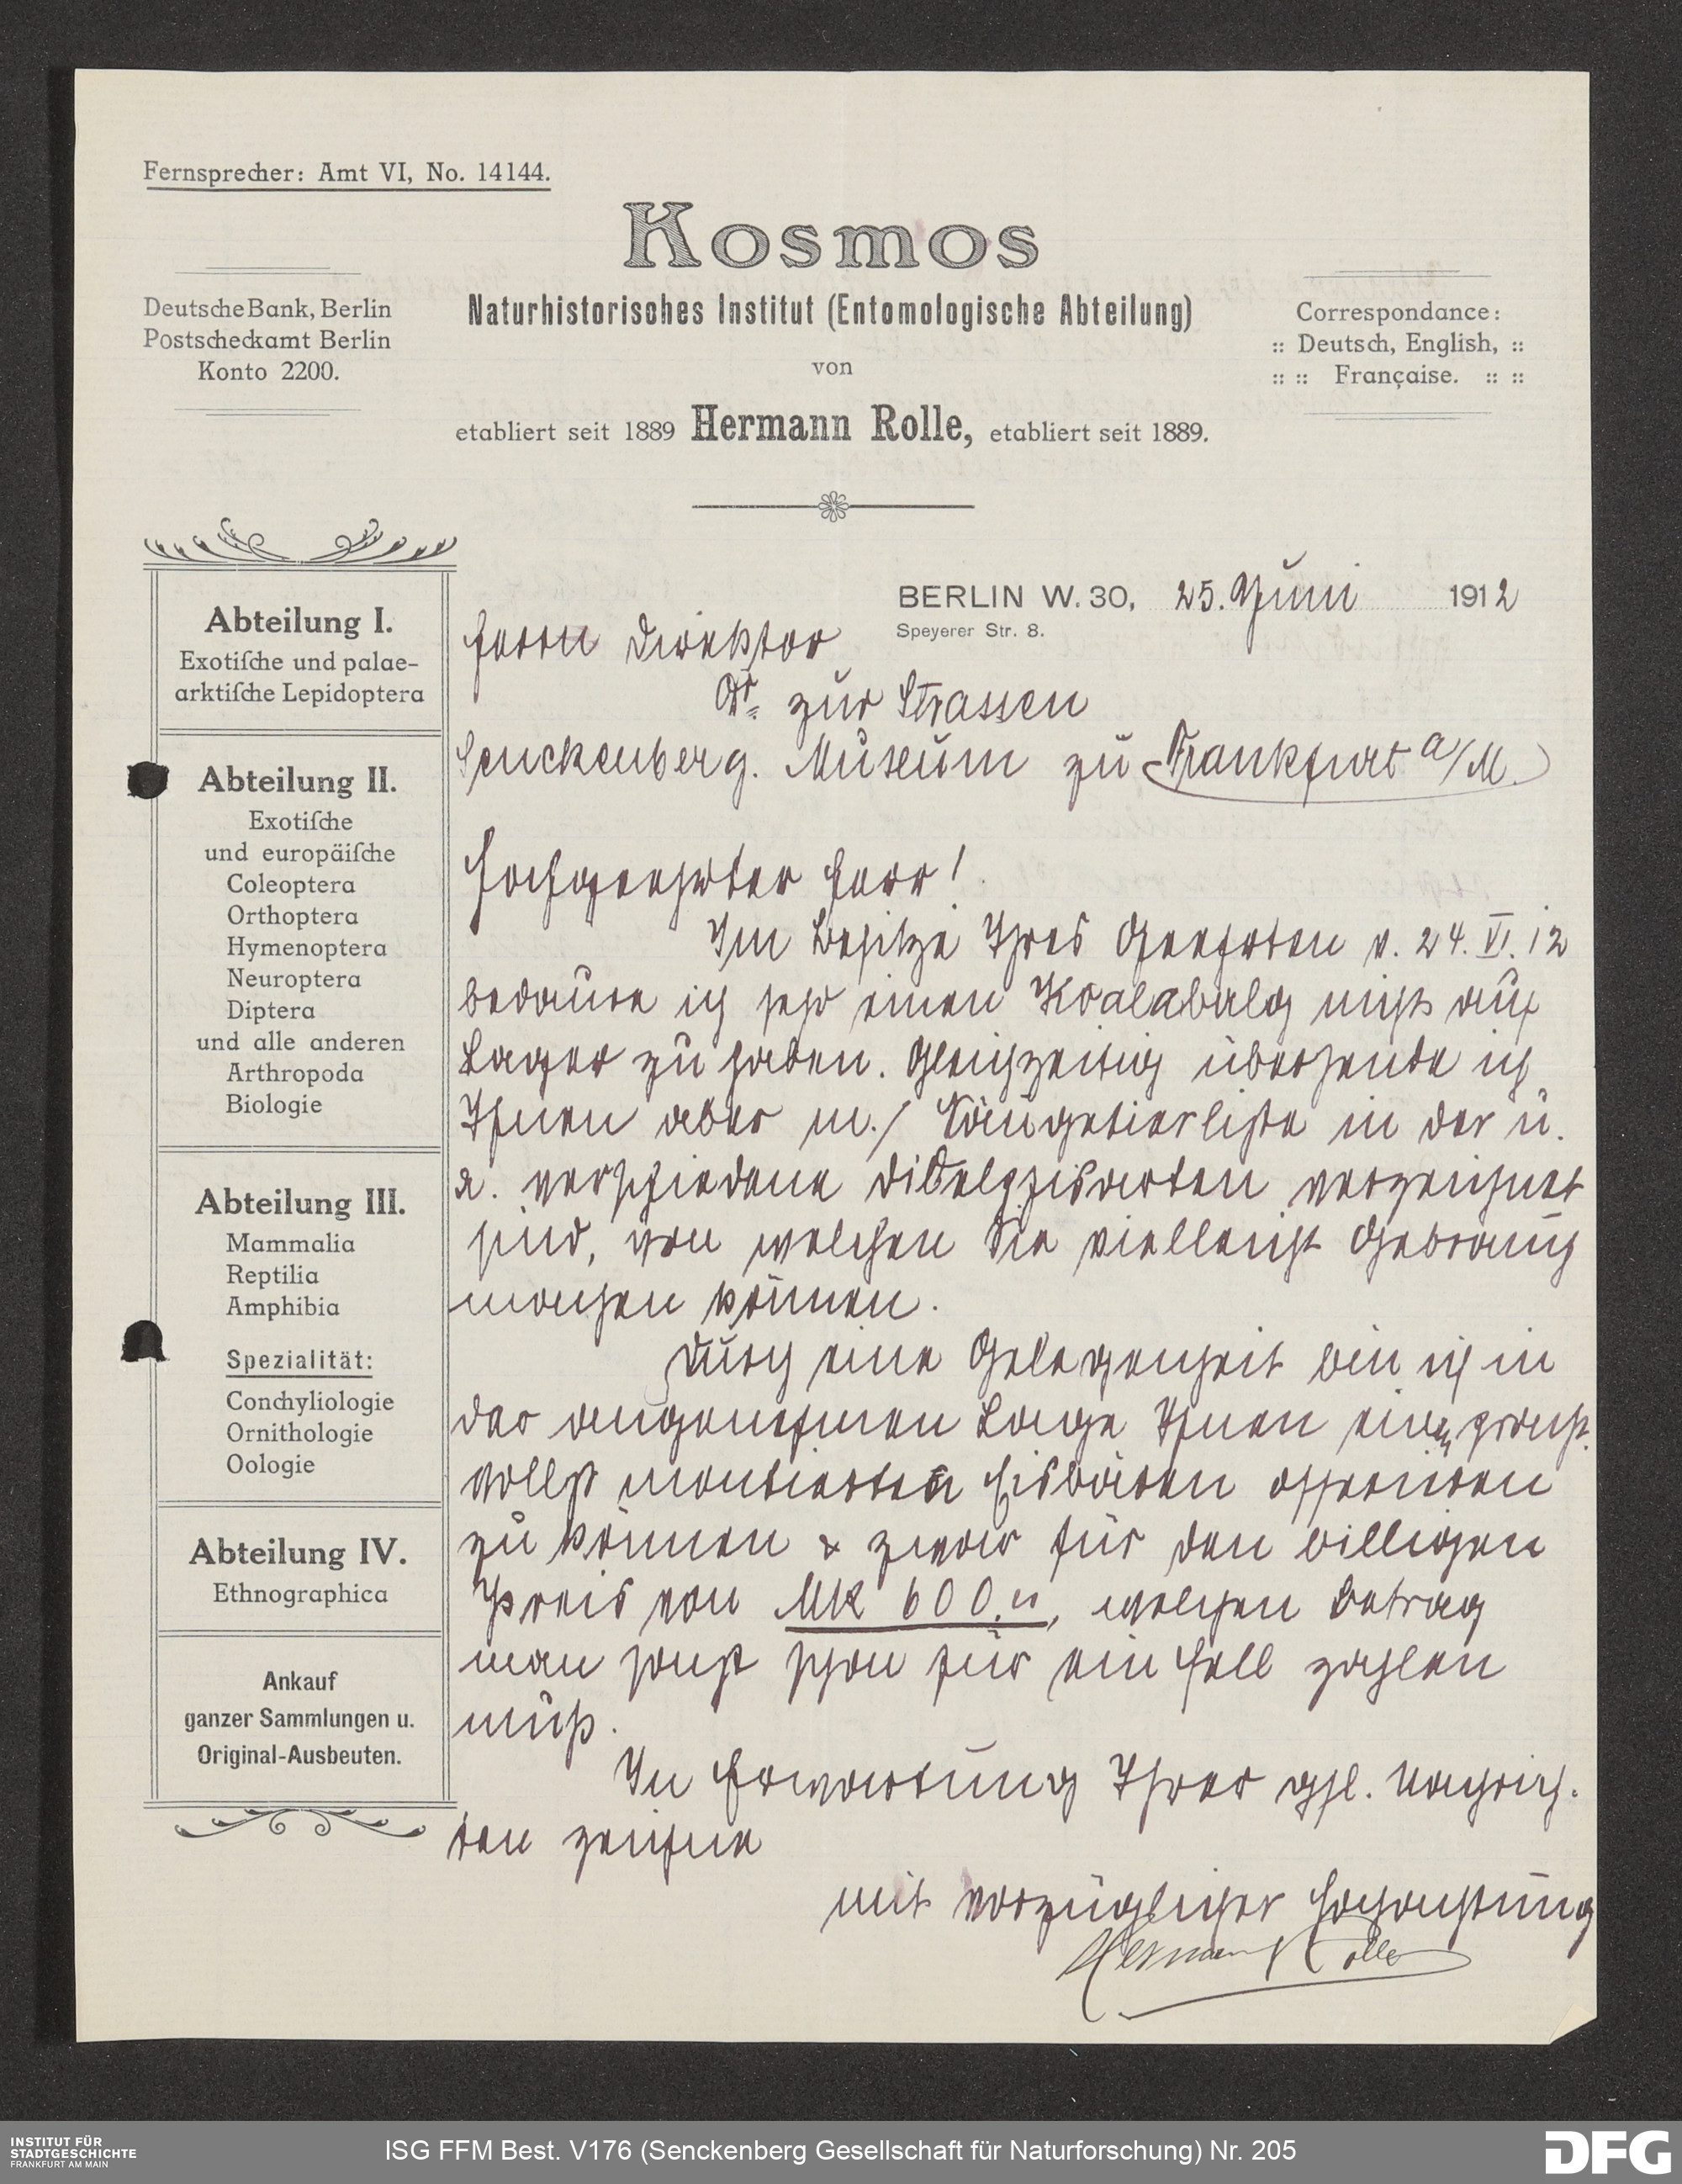 Fernsprecher: Amt VI, No. 14144.
Kosmos
Deutsche Bank, Berlin
Postscheckamt Berlin
Konto 2200.
Naturhistorisches Institut (Entomologische Abteilung)
von
etabliert seit 1889 Hermann Rolle, etabliert seit 1889.
Correspondance:
:: Deutsch, English, ::
:: :: Française. :: ::
Abteilung I.
Exotiſche und palae-
arktiſche Lepidoptera
Abteilung II.
Exotiſche
und europäiſche
Coleoptera
Orthoptera
Hymenoptera
Neuroptera
Diptera
und alle anderen
Arthropoda
Biologie
Abteilung III.
Mammalia
Reptilia
Amphibia
Spezialität:
Conchyliologie
Ornithologie
Oologie
Abteilung IV.
Ethnographica
Ankauf
ganzer Sammlungen u.
Original-Ausbeuten.
BERLIN W. 30, 25. Juni 1912
Speyerer Str. 8.
Herrn Direktor
Dr. zur Strassen
Senckenberg. Museum zu Frankfurt a/M.
Hochgeehrter Herr!
Im Besitze Ihres Geehrten v. 24. VI. 12
bedaure ich sehr einen Koalabalg nicht auf
Lager zu haben. Gleichzeitig übersende ich
Ihnen aber m./ Säugetierliste in der u.
a. verschiedene Didelphisarten verzeichnet
sind, von welchen Sie vielleicht Gebrauch
machen können.
Durch eine Gelegenheit bin ich in
der angenehmen Lage Ihnen einen pracht-
vollst montierten Eisbären offerieren
zu können & zwar für den billigen
Preis von Mk 600.–, welchen Betrag
man sonst schon für ein Fell zahlen
muß.
In Erwartung Ihrer gfl. Nachrich-
ten zeichne
mit vorzüglicher Hochachtung
Hermann Rolle
INSTITUT FÜR
STADTGESCHICHTE
FRANKFURT AM MAIN
ISG FFM Best. V176 (Senckenberg Gesellschaft für Naturforschung) Nr. 205
DFG